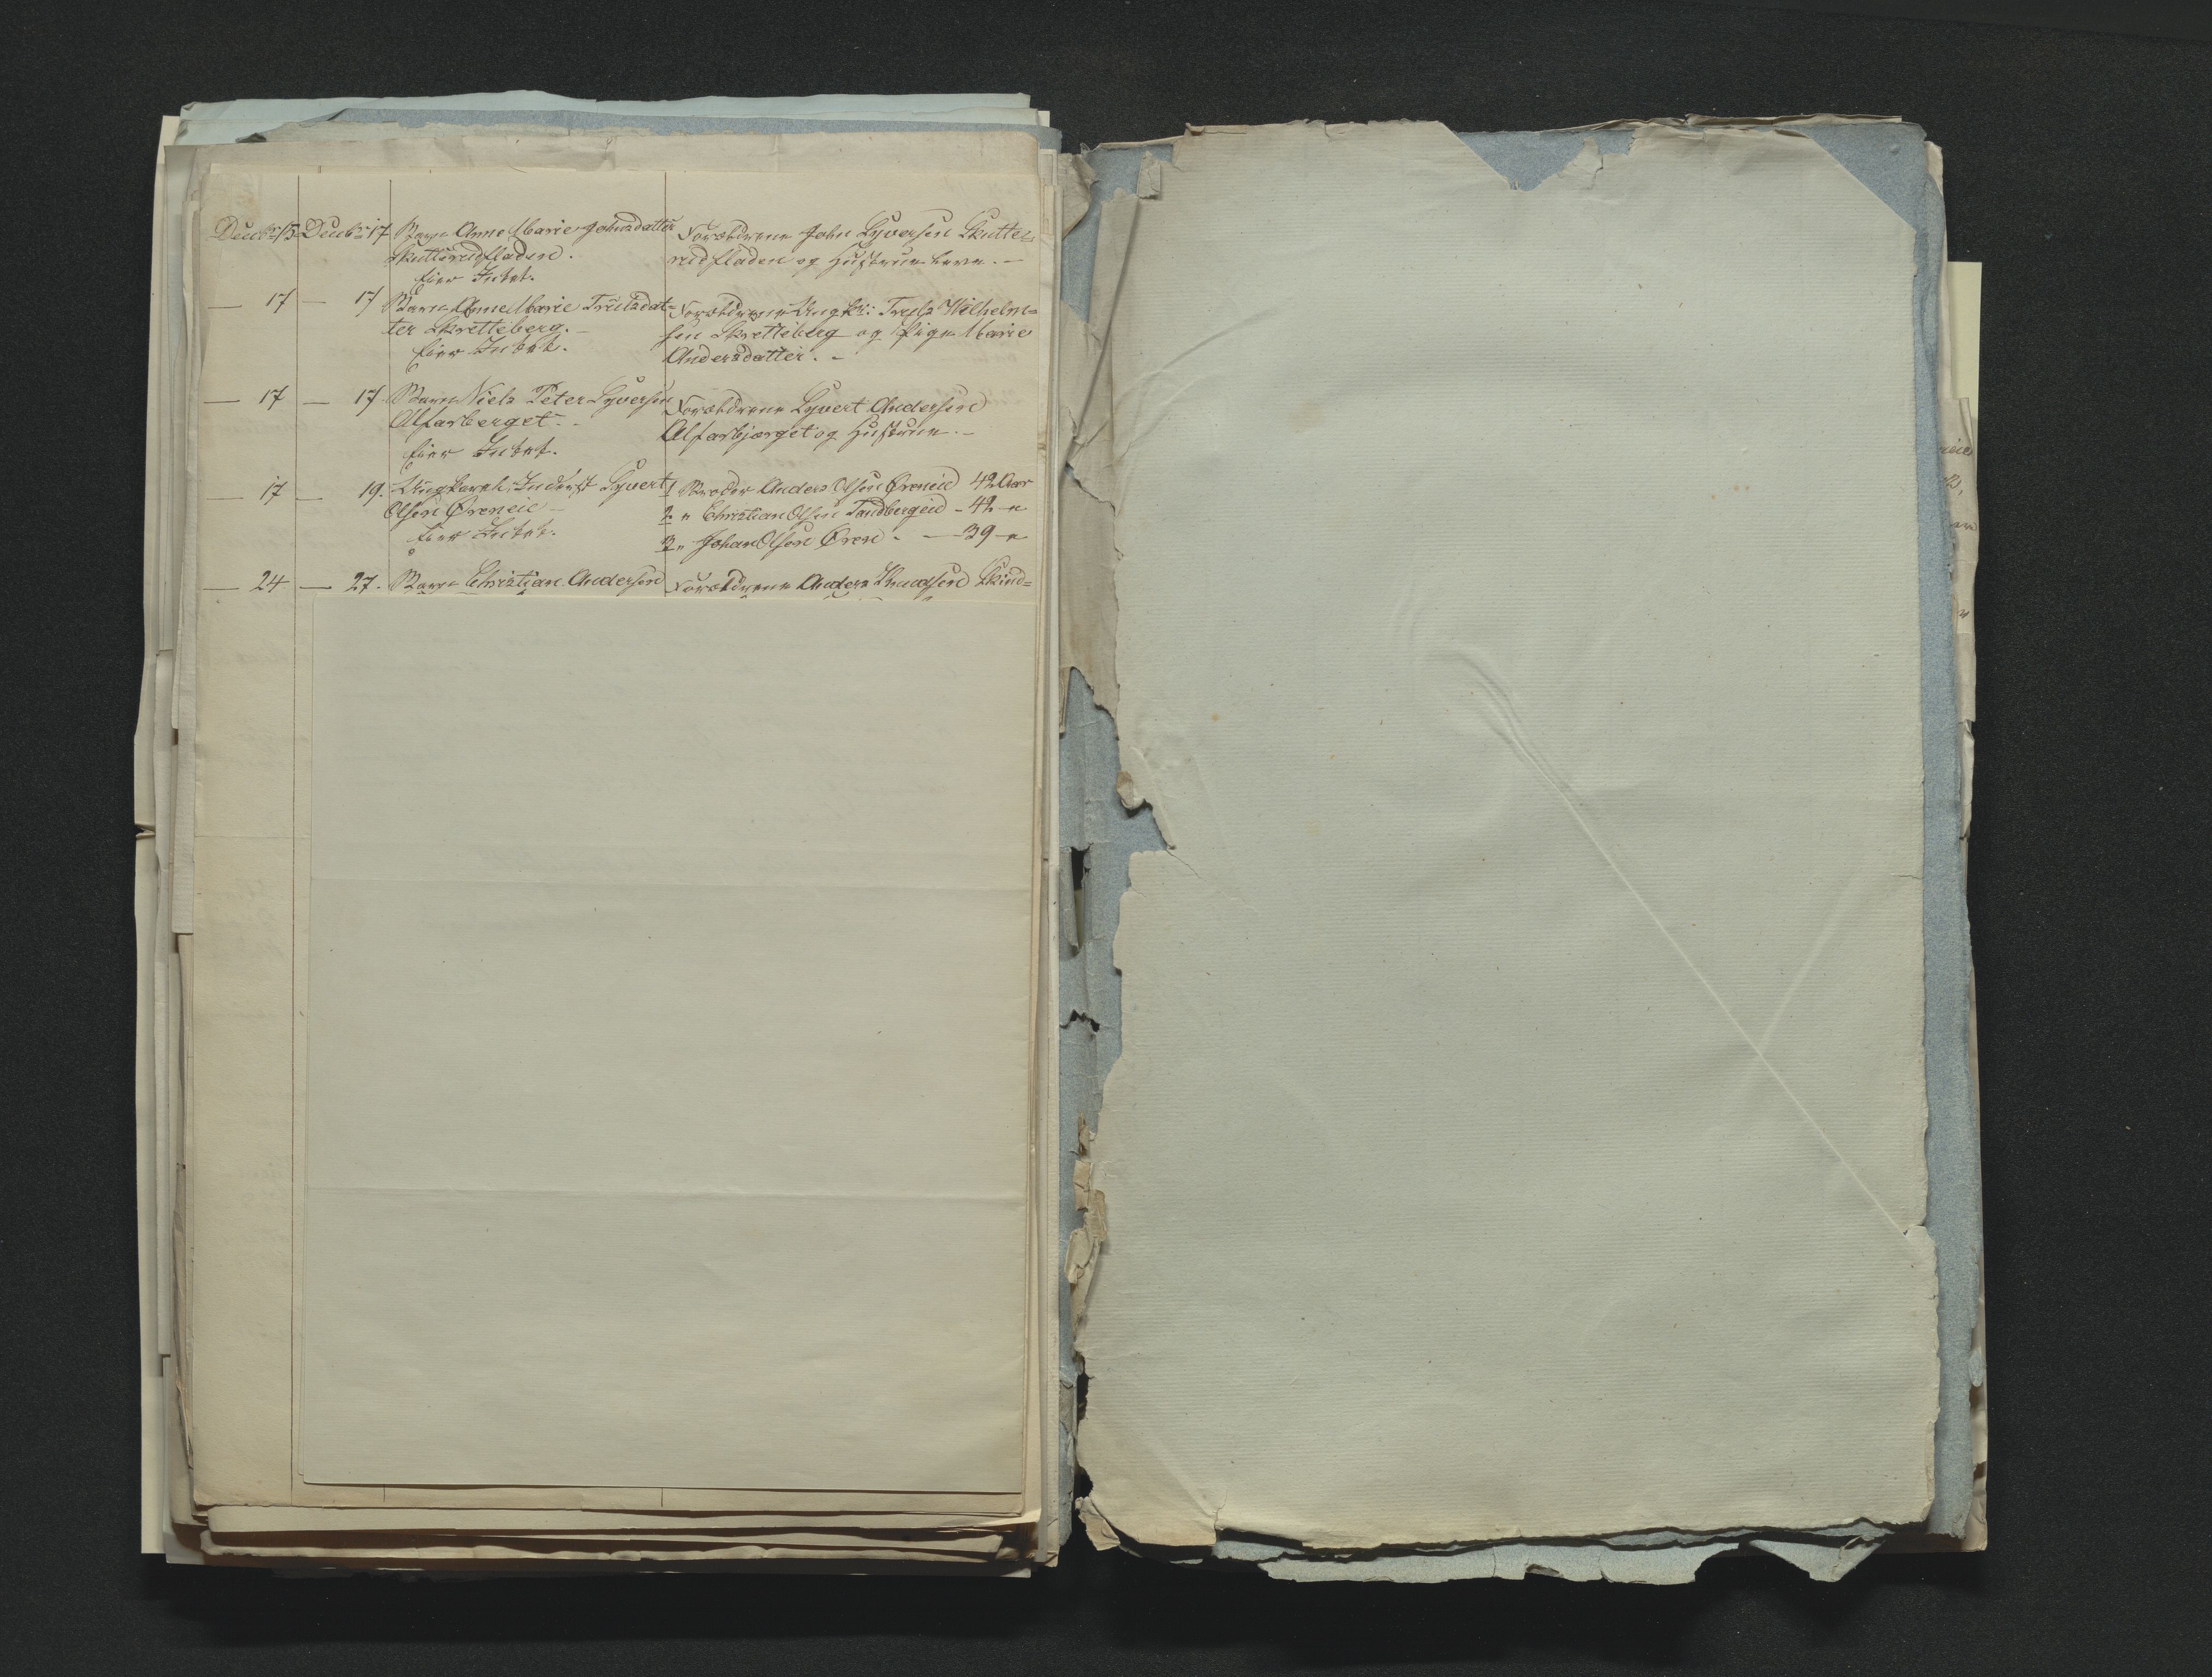 Decbr 15 Decbr 17 Barn Anne Marie Johnsdatter
Skutterudfladen.
Eier Intet.
Forældrene John Syversen Skutte-
rudfladen og Hustrue leve. –
— 17 — 17 Barn Anne Marie Trulsdat-
ter Skretteberg. –
Eier Intet.
Forældrene Ungkr: Truls Wilhelm=
sen Skretteberg og Pige Marie
Andersdatter. –
— 17 — 17 Barn Niels Peter Syversen
Alfarberget. –
Eier Intet.
Forældrene Syvert Andersen
Alfarbjerget og Hustrue. –
— 17 — 19. Ungkarl, Inderst Syvert
Olsen Øreneie –
Eier Intet.
1 Broder Anders Olsen Øreneie 42 Aar
2. " Christian Olsen Tandbergeie – 42 –"
3 " Johan Olsen Øren . — 39 –"
— 24 — 27. Barn Christian Andersen
Forældrene Anders Knudsen Skind=